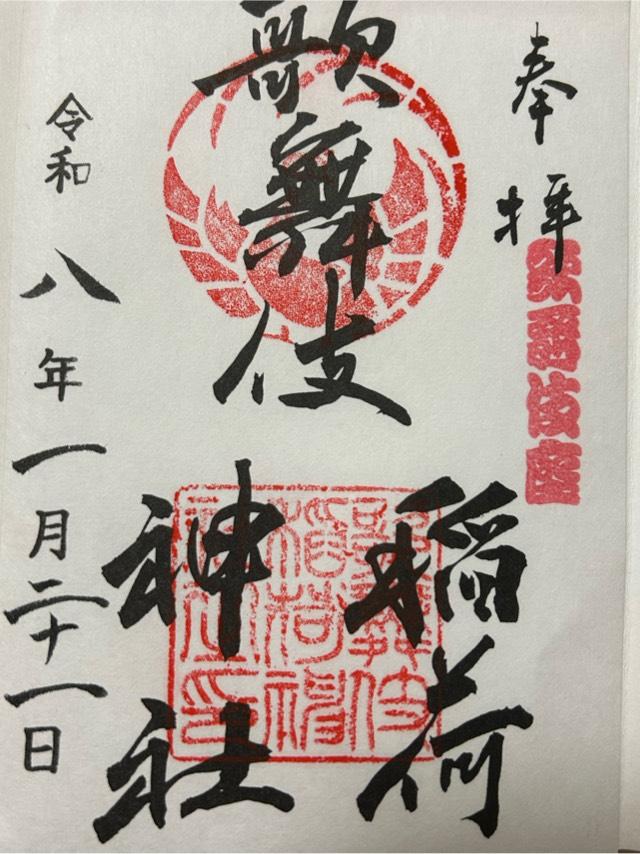 奉拝
歌舞伎座
歌舞伎
稲荷
神社
歌舞伎
稲荷神
社之印
令和八年一月二十一日